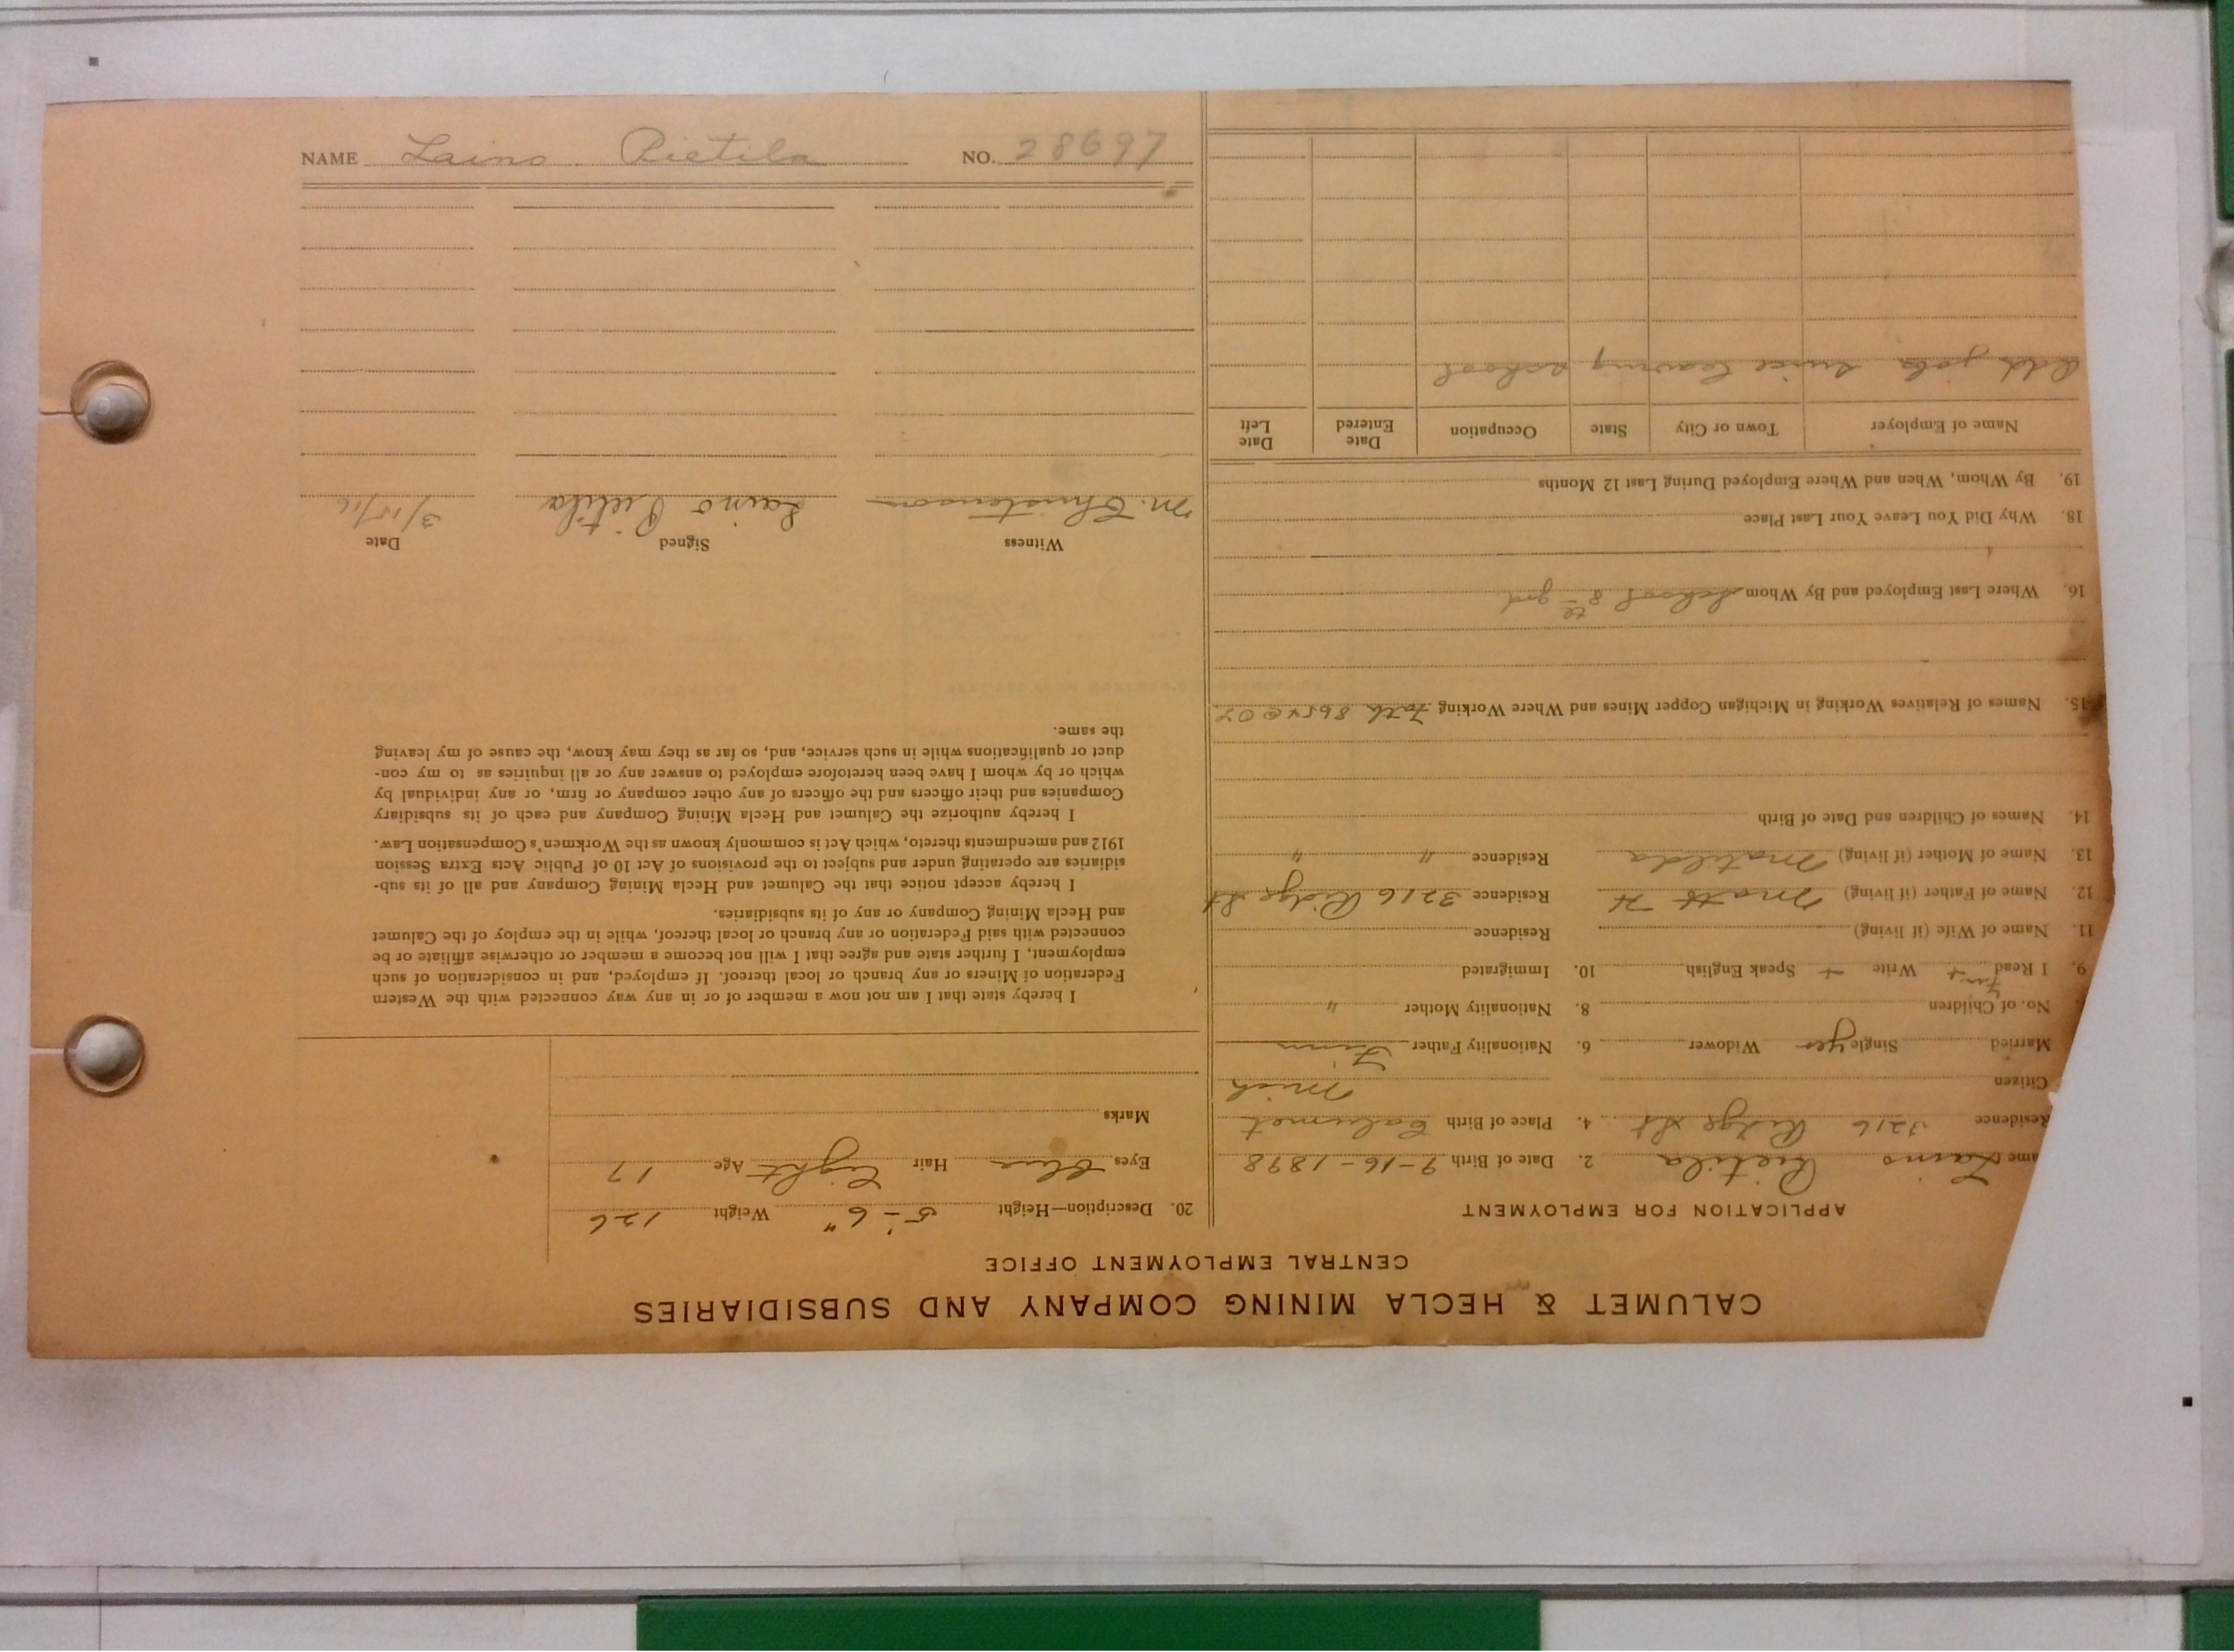 CALUMET & HECLA MINING COMPANY AND SUBSIDIARIES
CENTRAL EMPLOYMENT OFFICE
APPLICATION FOR EMPLOYMENT
ame Laino Pietila 2. Date of Birth 9-16-1898
Residence 3216 Ridge St 4. Place of Birth Calumet
Citizen Mich
Married Single yes Widower 6. Nationality Father Finn
No. of Children 8. Nationality Mother "
9. I Read + Write + Speak English 10. Immigrated
Finn
11. Name of Wife (if living) Residence
12. Name of Father (if living) Matt H Residence 3216 Ridge St
13. Name of Mother (if living) Matilda Residence " "
14. Names of Children and Date of Birth
15. Names of Relatives Working in Michigan Copper Mines and Where Working Fath 8654
16. Where Last Employed and By Whom School 8th grd
18. Why Did You Leave Your Last Place
19. By Whom, When and Where Employed During Last 12 Months
Name of Employer Town or City State Occupation Date Entered Date Left
Odd jobs since leaving school
20. Description—Height 5'-6" Weight 126
Eyes blue Hair Light Age 17
Marks
I hereby state that I am not now a member of or in any way connected with the Western
Federation of Miners or any branch or local thereof. If employed, and in consideration of such
employment, I further state and agree that I will not become a member or otherwise affiliate or be
connected with said Federation or any branch or local thereof, while in the employ of the Calumet
and Hecla Mining Company or any of its subsidiaries.
I hereby accept notice that the Calumet and Hecla Mining Company and all of its sub-
sidiaries are operating under and subject to the provisions of Act 10 of Public Acts Extra Session
1912 and amendments thereto, which Act is commonly known as the Workmen's Compensation Law.
I hereby authorize the Calumet and Hecla Mining Company and each of its subsidiary
Companies and their officers and the officers of any other company or firm, or any individual by
which or by whom I have been heretofore employed to answer any or all inquiries as to my con-
duct or qualifications while in such service, and, so far as they may know, the cause of my leaving
the same.
Witness Signed Date
M. Christenson Laino Pietila 3/15/16
NAME Laino Pietila NO. 28697